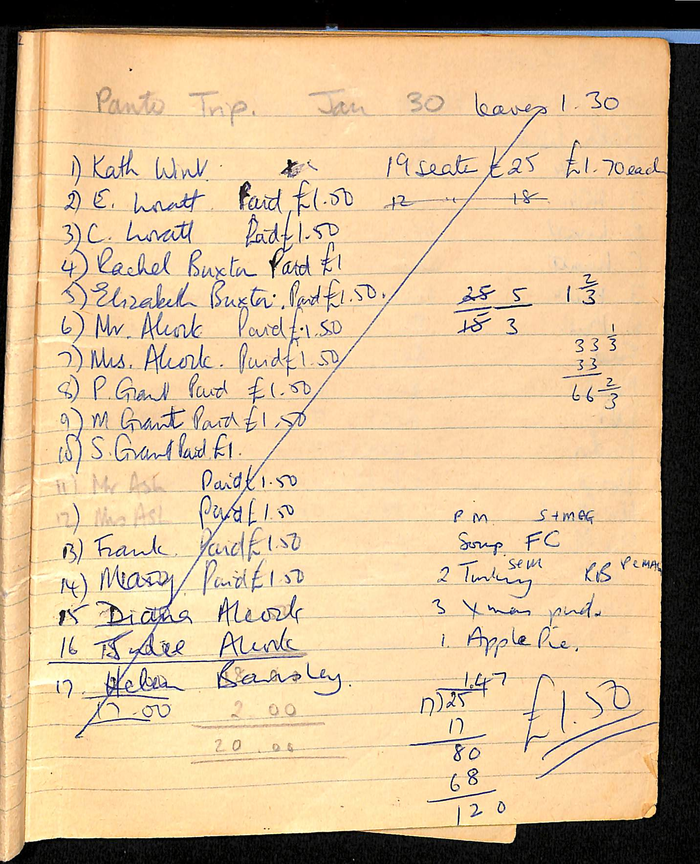 Panto Trip. Jan 30 leaves 1.30
1) Kath Wint. 19 seats £25 £1.70 each
2) E. Lovatt Paid £1.50 12 " 18
3) C. Lovatt Paid £1.50
4) Rachel Buxton Paid £1
5) Elizabeth Buxton. Paid £1.50. 25 5 1 2/3
6) Mr. Alcock Paid £1.50 15 3
7) Mrs. Alcock. Paid £1.50 33 1/3
8) P. Grant Paid £1.50 33
9) M Grant Paid £1.50 66 2/3
10) S. Grant Paid £1.
11) Mr Ash Paid £1.50
12) Mrs Ash Paid £1.50 P M. S+M&G
13) Frank. Paid £1.50 Soup FC
14) Mary Paid £1.50 2 Turkey RB
15 Diana Alcock 3 Xmas pud.
16 Alcock 1. Apple Pie.
17. Helen Barnsley. 1.47
17.00 2.00 17)25 £1.50
20.00 17
80
68
120